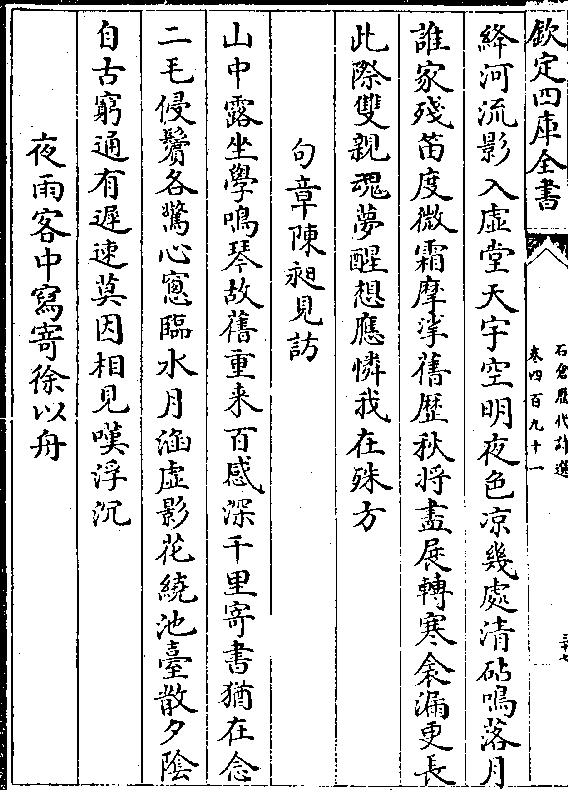 欽定四庫全書
石倉歴代詩選
卷四百九十一
三十七
絳河流影入虛堂天宇空明夜色凉幾處清砧鳴落月
誰家殘笛度微霜摩挲舊歴秋將盡展轉寒衾漏更長
此際雙親魂夢醒想應憐我在殊方
句章陳昶見訪
山中露坐學鳴琴故舊重來百感深千里寄書猶在念
二毛侵鬢各驚心窓臨水月涵虛影花繞池臺散夕陰
自古窮通有遲速莫因相見嘆浮沉
夜雨客中寫寄徐以舟